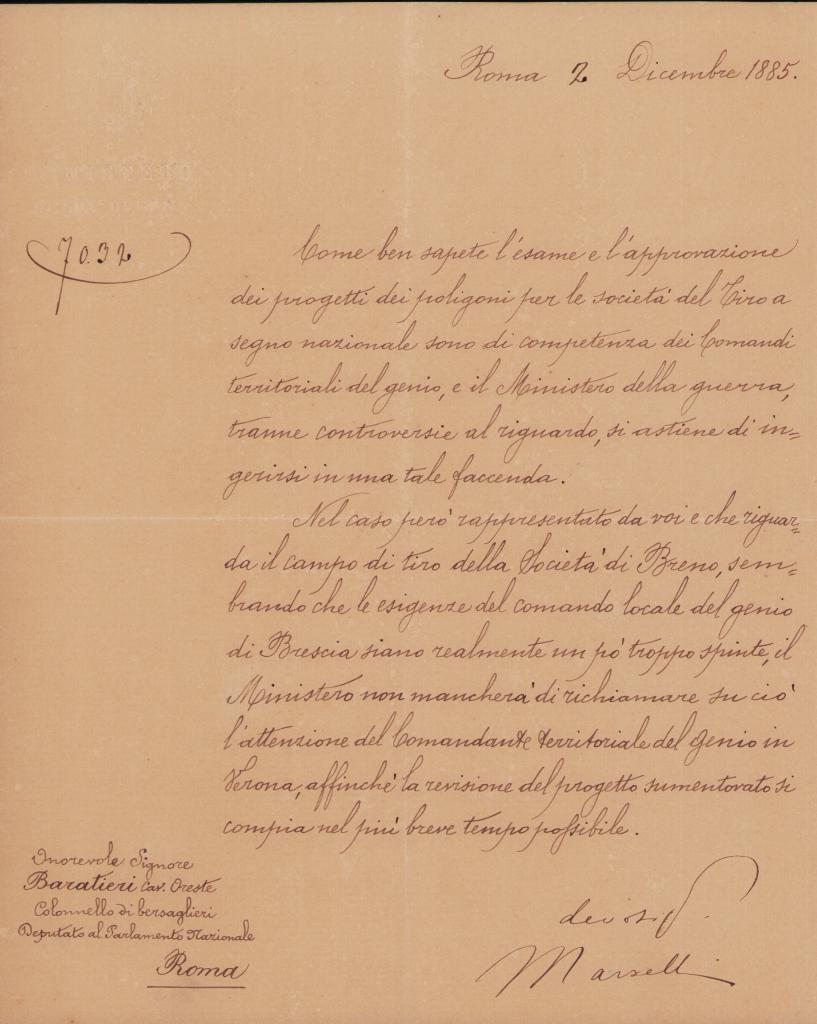 Roma 2 Dicembre 1885.
7032
Come ben sapete l'esame e l'approvazione
dei progetti dei poligoni per le società del Tiro a
segno nazionale sono di competenza dei Comandi
territoriali del genio, e il Ministero della guerra,
tranne controversie al riguardo, si astiene di in=
gerirsi in una tale faccenda.
Nel caso però rappresentato da voi e che riguar=
da il campo di tiro della Società di Breno, sem=
brando che le esigenze del comando locale del genio
di Brescia siano realmente un pò troppo spinte, il
Ministero non mancherà di richiamare su ciò
l'attenzione del Comandante territoriale del genio in
Verona, affinchè la revisione del progetto sumentovato si
compia nel più breve tempo possibile.
Onorevole Signore
Baratieri Cav. Oreste
Colonnello di bersaglieri
Deputato al Parlamento Nazionale
Roma
Marselli